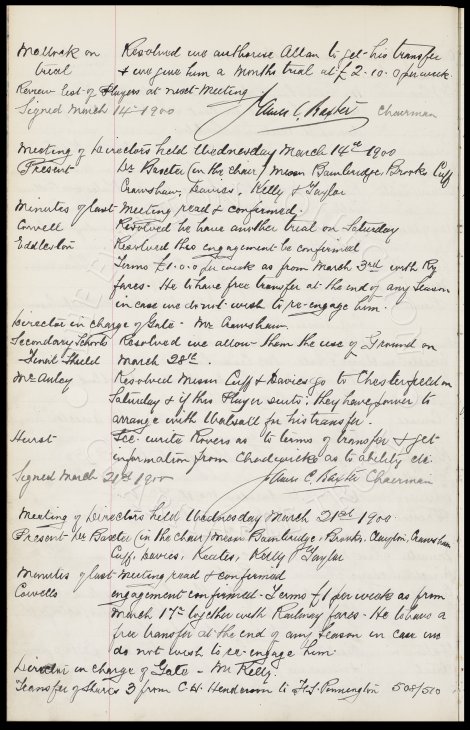 Molloak on Resolved we authorise Allan to get his transfer
trial & we give him a months trial at £2.10.0 per week.
Review list of Players at next Meeting
Signed March 14th 1900 James C. Baxter Chairman
Meeting of Directors held Wednesday March 14th 1900
Present Dr Baxter (in the chair) Messrs Bainbridge, Brooks, Cuff
Crawshaw, Davies, Kelly & Taylor
Minutes of last Meeting read & confirmed.
Cowell Resolved he have another trial on Saturday
Eddleston Resolved this engagement be confirmed
Terms £1.0.0 per week as from March 3rd with Ry
fares. He to have free transfer at the end of any Season
in case we do not wish to re-engage him.
Director in charge of Gate - Mr Crawshaw.
Secondary Schools Resolved we allow them the use of Ground on
Shield March 28th.
McAuley Resolved Messrs Cuff & Davies go to Chesterfield on
Saturday & if this Player suits they have power to
arrange with Walsall for his transfer.
Hurst Sec. write Rovers as to terms of transfer & get
information from Chadwick as to ability etc.
Signed March 21st 1900 James C. Baxter Chairman
Meeting of Directors held Wednesday March 21st 1900.
Present Dr Baxter (in the chair) Messrs Bainbridge, Brooks, Clayton, Crawshaw
Cuff, Davies, Keates, Kelly & Taylor
Minutes of last Meeting read & confirmed
Cowells engagement confirmed - Terms £1 per week as from
March 17th together with Railway fares - He to have a
free transfer at the end of any Season in case we
do not wish to re-engage him.
Director in charge of Gate - Mr Kelly.
Transfer of Shares 3 from C.H. Henderson to H.S. Pennington 508/510